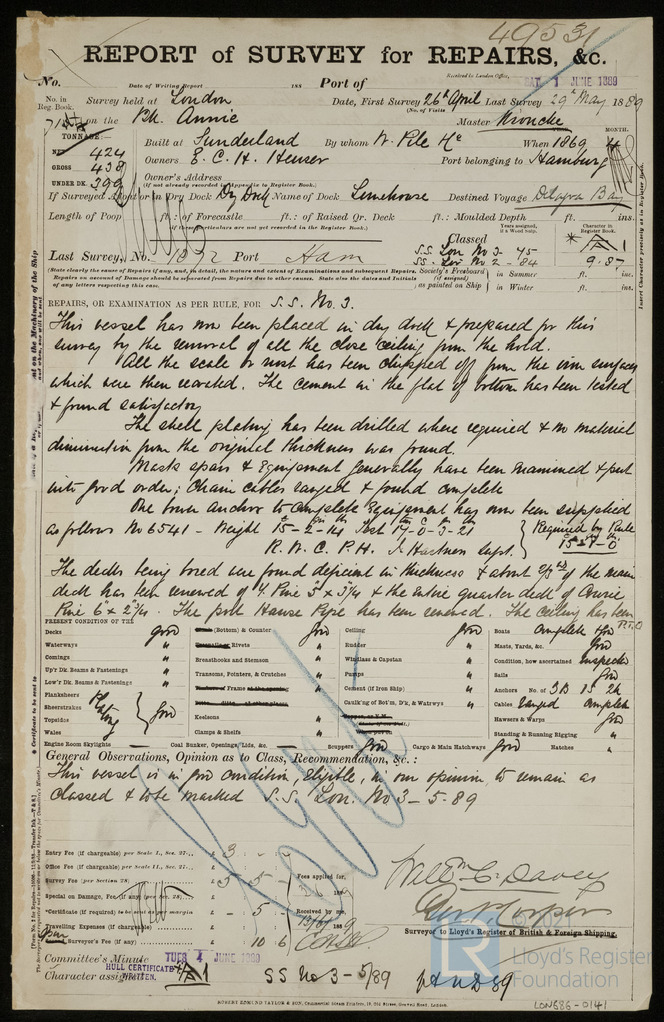 49531
REPORT of SURVEY for REPAIRS, &c.
No. Date of Writing Report 188 Port of Received in London Office, SAT. 1 JUNE 1889
No. in Reg. Book. Survey held at London Date, First Survey 26th April Last Survey 29th May 1889
(No. of Visits)
on the Bk. Annie Master Kroncke
TONNAGE:— Built at Sunderland By whom W. Pile When 1869 MONTH. 4
NET 424
GROSS 438 Owners E. C. H. Heuser Port belonging to Hamburg
UNDER DK. 399 Owner's Address
(if not already recorded in Appendix to Register Book.)
If Surveyed Afloat or in Dry Dock Dry Dock Name of Dock Limehouse Destined Voyage Delagoa Bay
Length of Poop ft.: of Forecastle ft.: of Raised Qr. Deck ft.: Moulded Depth ft. ins.
(if these particulars are not yet recorded in the Register Book.)
Classed Years assigned, if a Wood Ship. Character in Register Book.
Last Survey, No. Port Ham S.S. Lon No 3- 75
S.S. No 2 - 84 9.87
(State clearly the cause of Repairs, if any, and, in detail, the nature and extent of Examinations and subsequent Repairs.
Repairs on account of Damage should be separated from Repairs due to other causes. State also the dates and Initials
of any letters respecting this case.
Society's Freeboard as painted on Ship in Summer ft. ins.
in Winter ft. ins.
REPAIRS, OR EXAMINATION AS PER RULE, FOR S.S. No. 3.
This vessel has now been placed in dry dock & prepared for this
survey by the removal of all the close ceiling from the hold.
All the scale or rust has been chipped off from the iron surfaces
which were then recoated. The cement in the flat of bottom has been tested
& found satisfactory
The shell plating has been drilled where required & no material
diminution from the original thickness was found.
Masts spars & Equipment generally have been examined & put
into good order; chain cables ranged & found complete
One bower anchor to complete Equipment has now been supplied
as follows No 6541 - Weight 15-2-14 Test 17-0-3-21 Required by Rule
R. W. C. P. H. Supt. 15-3-0
The decks being bored were found deficient in thickness & about 2/3rds of the main
deck has been renewed of Y. Pine 5" x 3 1/4 & the entire quarter deck of
Pine 6" x 2 3/4. The port Hawse Pipe has been renewed. The ceiling has been
P.T.O
PRESENT CONDITION OF THE
Decks good (Bottom) & Counter good Ceiling good Boats Complete & good
Waterways " Rivets " Rudder " Masts, Yards, &c. good
Comings " Breasthooks and Stemson " Windlass & Capstan " Condition, how ascertained inspected
Up'r Dk. Beams & Fastenings " Transoms, Pointers, & Crutches " Pumps " Sails good
Low'r Dk. Beams & Fastenings " Frame " Cement (if Iron Ship) " Anchors No. of 3B 1S 2k
Planksheers Caulk'ng of Bot'm, D'k, & Watrwys " Cables ranged complete
Sheerstrakes Plating good Keelsons " Hawsers & Warps good
Topsides Clamps & Shelfs " Standing & Running Rigging "
Wales
Engine Room Skylights — Coal Bunker, Openings, Lids, &c. — Scuppers good Cargo & Main Hatchways good Hatches "
General Observations, Opinion as to Class, Recommendation, &c.:—
This vessel is in good condition, Eligible, in our opinion, to remain as
classed & to be marked S.S. Lon. No 3 - 5.89
Entry Fee (if chargeable) per Scale I., Sec. 27, £ 3 . - . -
Office Fee (if chargeable) per Scale II., Sec. 27, £
Survey Fee (per Section 28) £ 5 . 5 . - Fees applied for,
Special or Damage Fee, if any (per Sec. 28) £
*Certificate (if required) to be sent as per margin £ - 5 . - Received by me,
Travelling Expenses (if chargeable) £
Surveyor's Fee (if any) £ 10 6
Willm C. Davey
Surveyor to Lloyd's Register of British & Foreign Shipping.
Committee's Minute TUES 4 JUNE 1889
HULL CERTIFICATE WRITTEN.
Character assigned A 1 SS No 3 - 5/89
Lloyd's Register
Foundation
ROBERT EDMUND TAYLOR & SON, Commercial Steam Printers, 19, Old Street, Goswell Road, London.
LON686-0141
* Certificate to be sent to
Insert Character precisely as in Register Book.